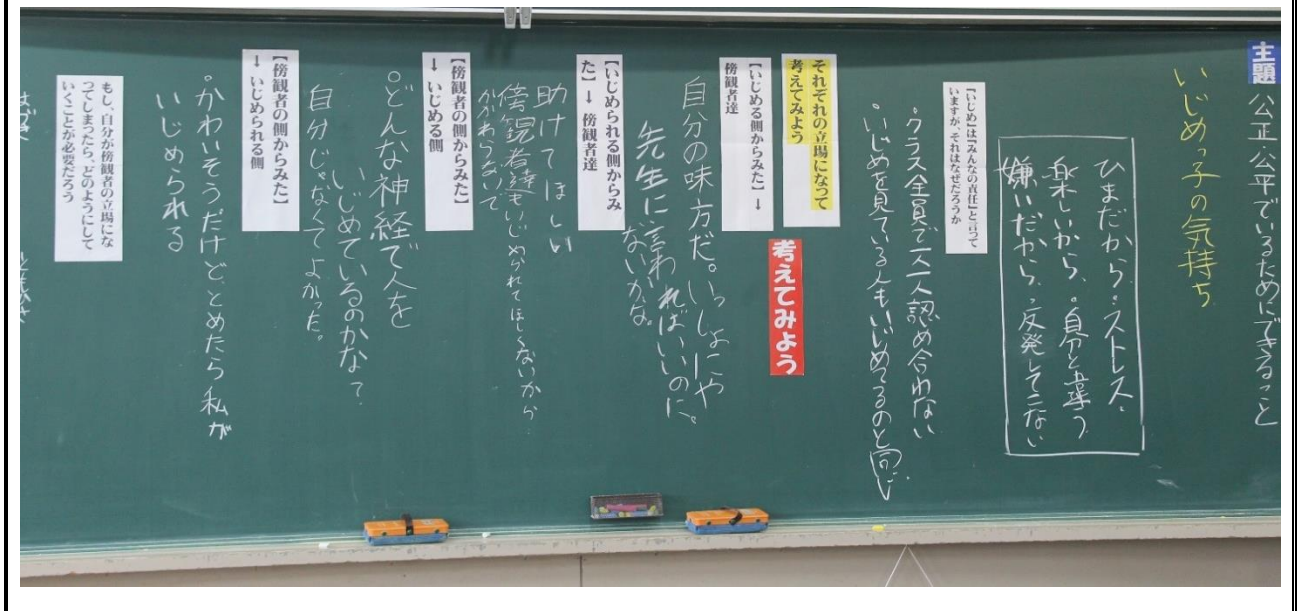 主題 公正・公平でいるためにできること
いじめっ子の気持ち
ひまだから。・ストレス。
楽しいから、・自分と違う
嫌いだから、・反発してこない
『いじめ』は『みんなの責任』と言って
いますが、それはなぜだろうか
・クラス全員で一人一人認め合わない
・いじめを見ている人もいじめてるのと同じ
それぞれの立場になって
考えてみよう
考えてみよう
【いじめる側からみた】→
傍観者達
自分の味方だ。いっしょにや
ればいいのに。
先生に言わ
ないかな。
【いじめられる側からみ
た】→傍観者達
助けてほしい
傍観者達もいじめられてほしくないから
かかわらないで
【傍観者の側からみた】
→ いじめる側
どんな神経で人を
いじめているのかな?
【傍観者の側からみた】
→ いじめられる側
自分じゃなくてよかった。
かわいそうだけど、とめたら私が
いじめられる
もし、自分が傍観者の立場にな
ってしまったら、どのようにして
いくことが必要だろう